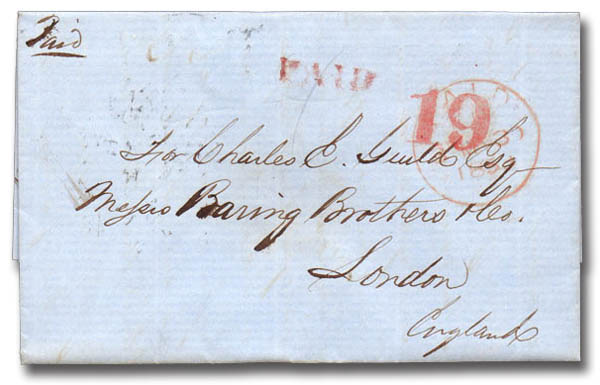 Paid
PAID
19
For Charles E. Guild Esq
Messrs Baring Brothers & Co.
London
England